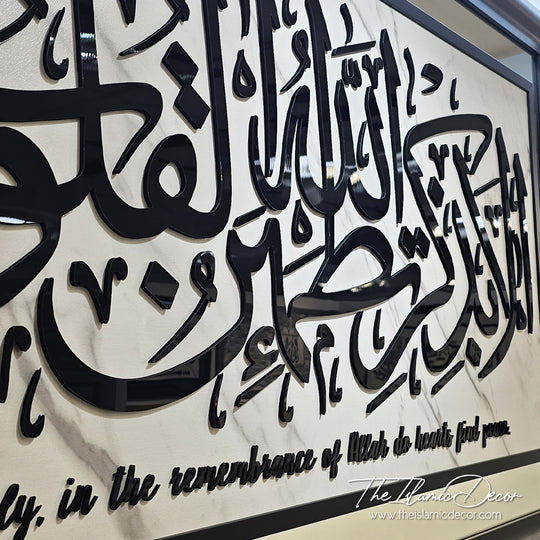 ألا بذكر الله تطمئن القلو
ly, in the remembrance of Allah do hearts find peace.
The Islamic Decor
www.theislamicdecor.com